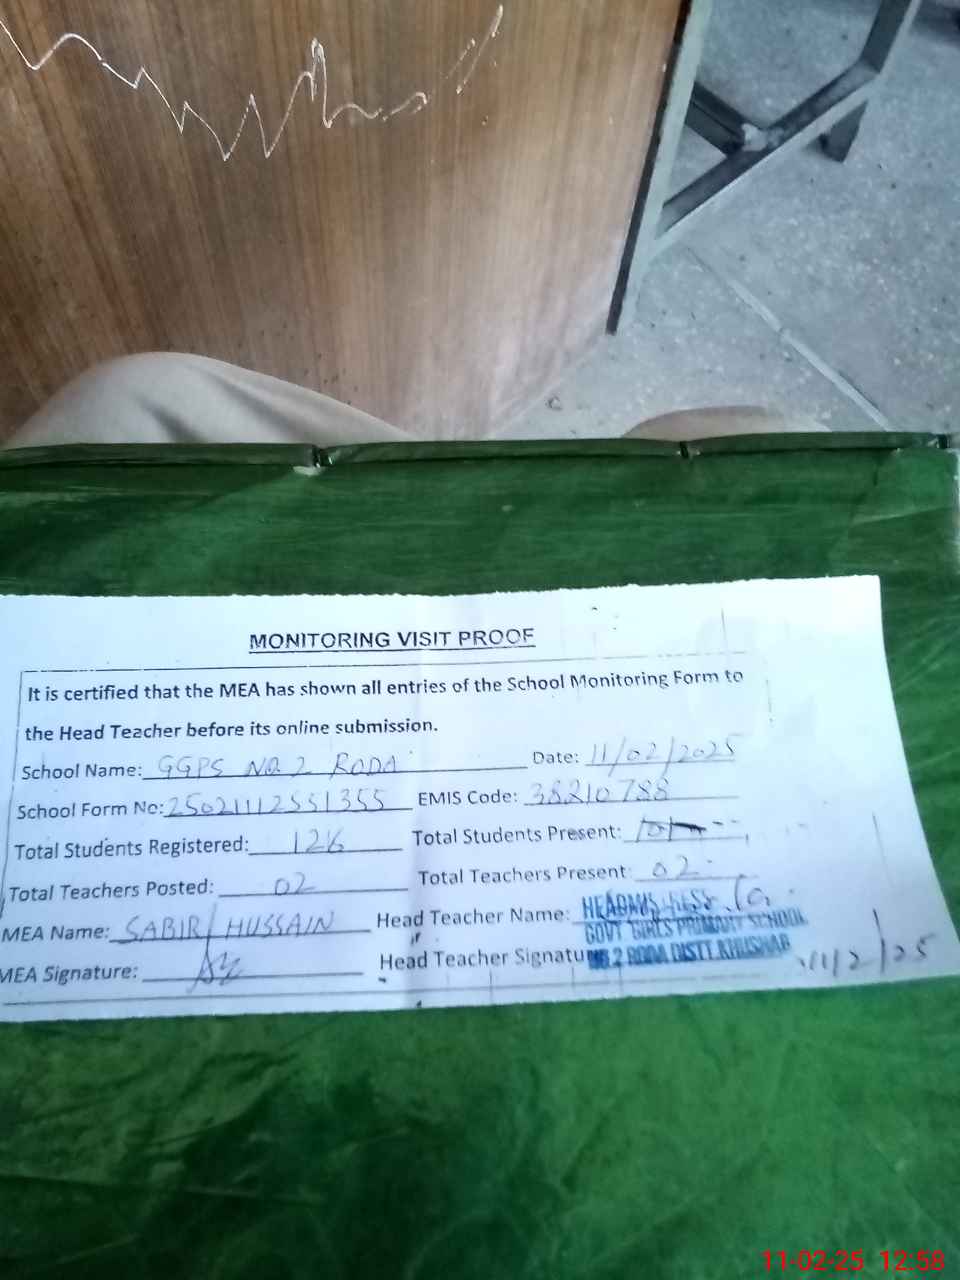 MONITORING VISIT PROOF
It is certified that the MEA has shown all entries of the School Monitoring Form to
the Head Teacher before its online submission.
School Name: GGPS NO. 2 RODA Date: 11/02/2025
School Form No: 25021112551355 EMIS Code: 38210788
Total Students Registered: 126 Total Students Present:
Total Teachers Posted: 02 Total Teachers Present: 02
MEA Name: SABIR HUSSAIN Head Teacher Name: HEADMISTRESS
GOVT GIRLS PRIMARY SCHOOL
MEA Signature: Head Teacher Signature NO.2 RODA DISTT.KHUSHAB 11/2/25
11-02-25 12:58